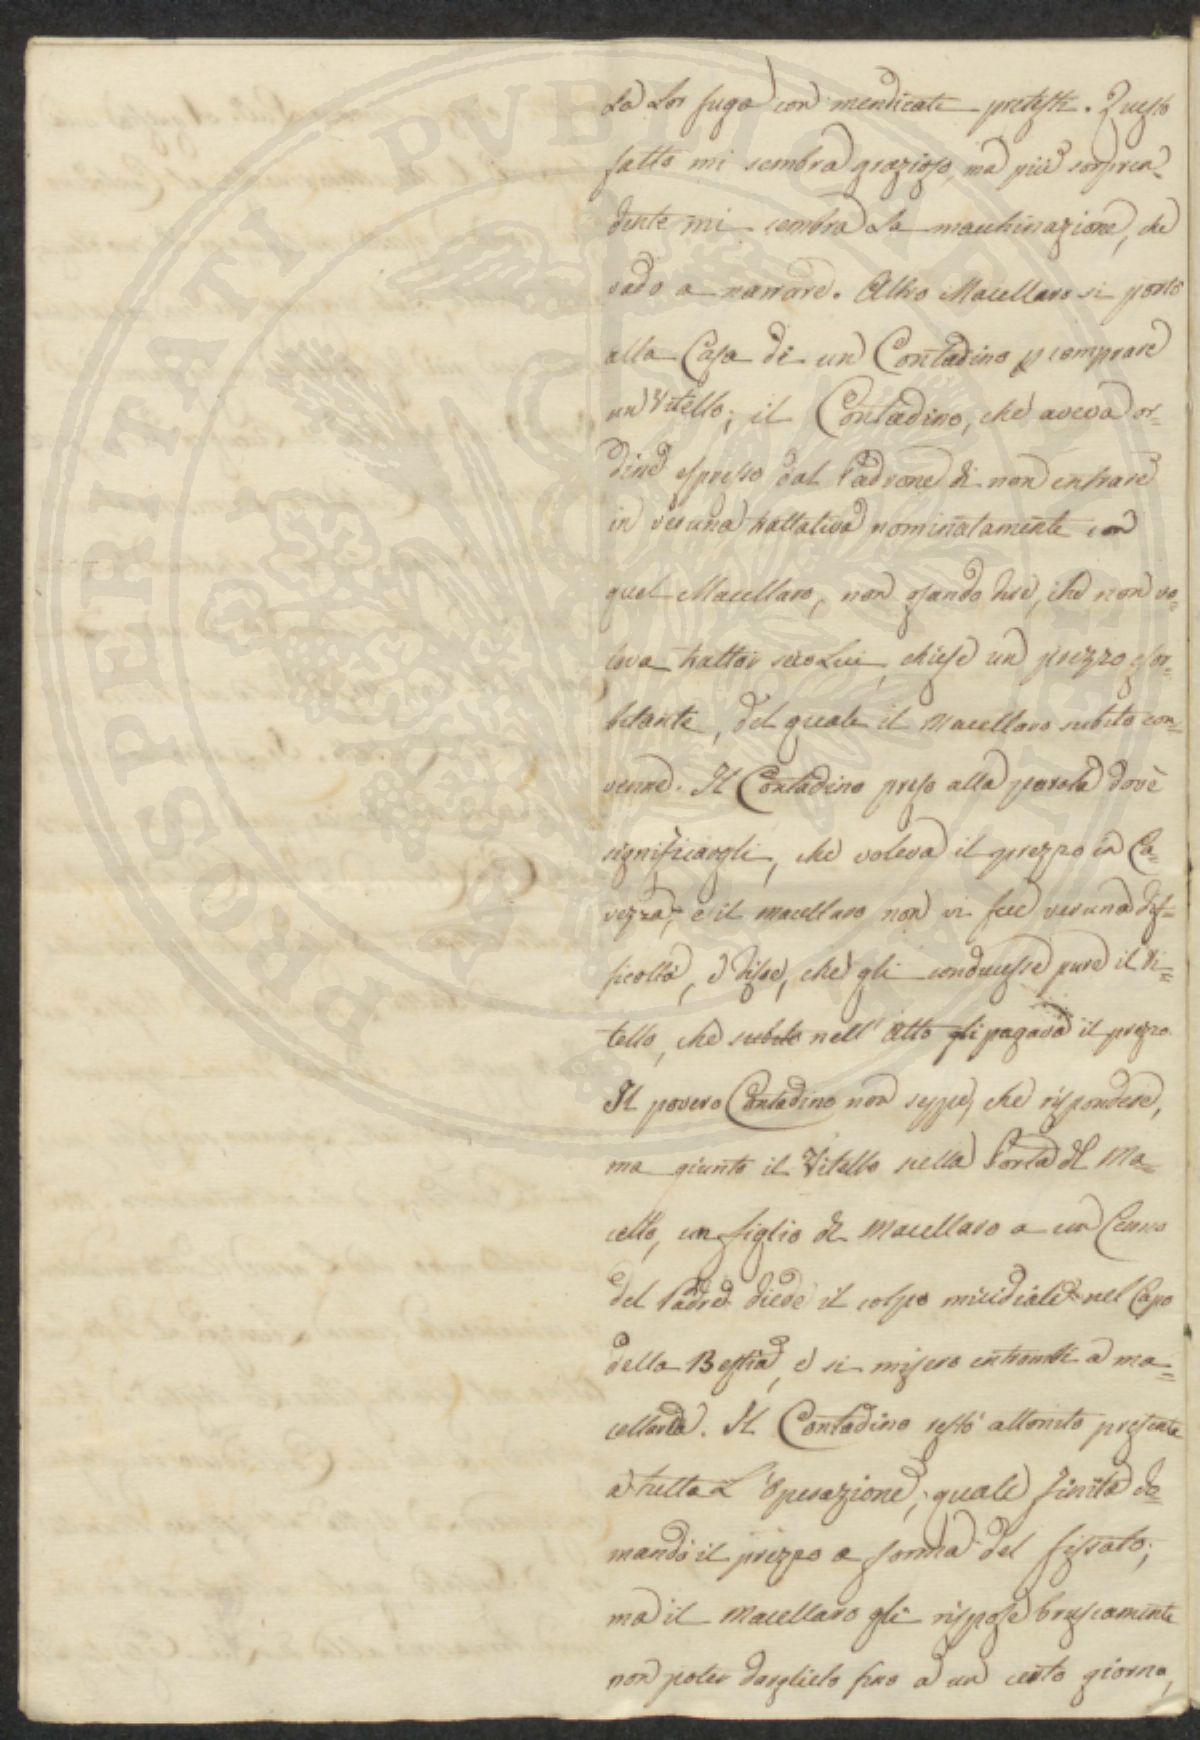 la Lor fuga con mendicati pretesti. Questo
fatto mi sembra grazioso, ma più sorpren-
dente mi sembra la macchinazione, che
vado a narrare. Altro Macellaro si portò
alla Casa di un Contadino p comprare
un Vitello; il Contadino, che aveva or-
dine espresso dal Padrone di non entrare
in veruna trattativa nominatamente con
quel Macellaro, non osando dire, che non vo-
leva trattar seco Lui, chiese un prezzo esor-
bitante, del quale il Macellaro subito con-
venne. Il Contadino preso alla parola dovè
significargli, che voleva il prezzo in Ca-
vezza, e il macellaro non vi fece veruna dif-
ficoltà, e disse, che gli conducesse pure il Vi-
tello, che subito nell' Atto gli pagava il prezzo.
Il povero Contadino non seppe, che rispondere,
ma giunto il Vitello nella Porta del Ma-
cello, un figlio del Macellaro a un Cenno
del Padre diede il colpo micidiale nel Capo
della Bestia, e si misero entrambi a ma-
cellarla. Il Contadino restò attonito presente
a tutta L' operazione, quale finita do-
mandò il prezzo a forma del fissato;
ma il Macellaro gli rispose bruscamente
non poter darglielo fino a un certo giorno,
PROSPERITATI PVBLICAE